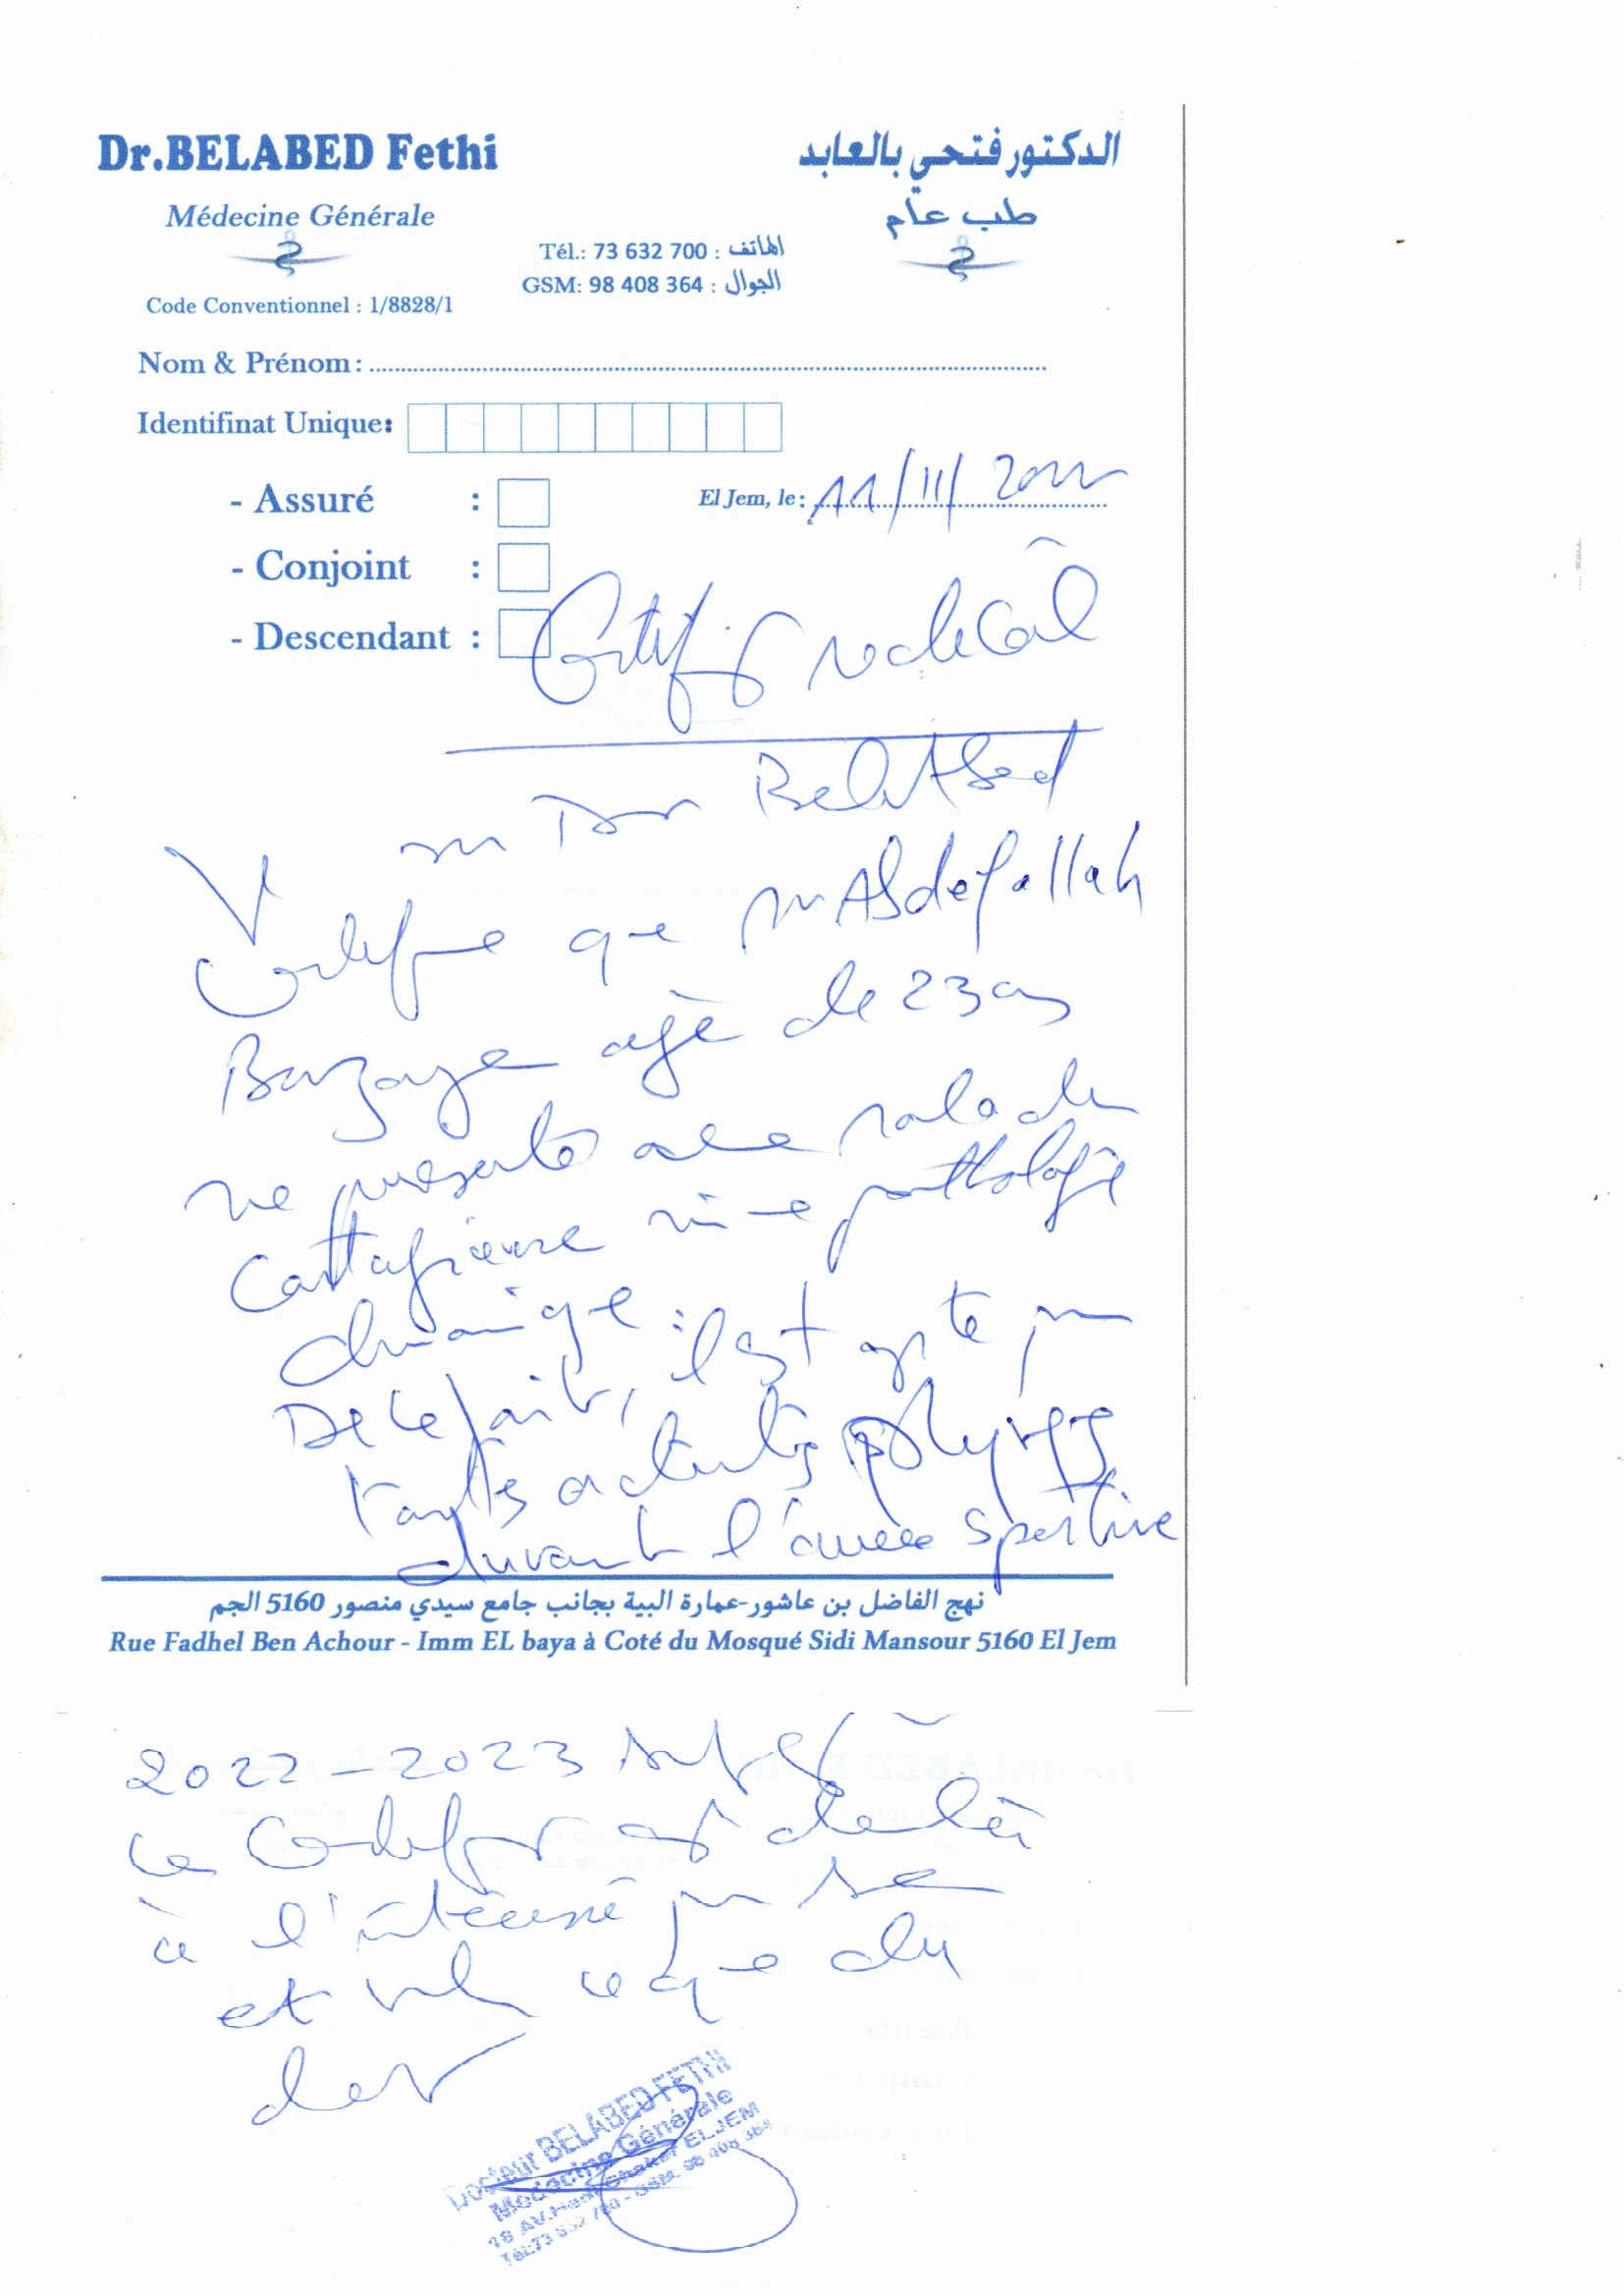 Dr.BELABED Fethi
الدكتور فتحي بالعابد
Médecine Générale
طب عام
Tél.: 73 632 700 : الهاتف
GSM: 98 408 364 : الجوال
Code Conventionnel : 1/8828/1
Nom & Prénom :
Identifinat Unique:
- Assuré :
El Jem, le : 11/11/2022
- Conjoint :
- Descendant :
Certificat médical
Dr BelAbed
Certifie que Mr Abdefallah
âgé de 23 ans
ne présente maladie
contagieuse ni pathologie
chronique : il est apte
De ce fait,
toutes activités physiques
durant l'année sportive
نهج الفاضل بن عاشور-عمارة البية بجانب جامع سيدي منصور 5160 الجم
Rue Fadhel Ben Achour - Imm EL baya à Coté du Mosqué Sidi Mansour 5160 El Jem
2022-2023
ce certificat est délivré
à l'intéressé pour
et valoir ce que de
droit
Docteur BELABED FETHI
Médecine Générale
18 AV.Hedi Chaker EL JEM
Tél:73 632 700 - GSM: 98 408 364